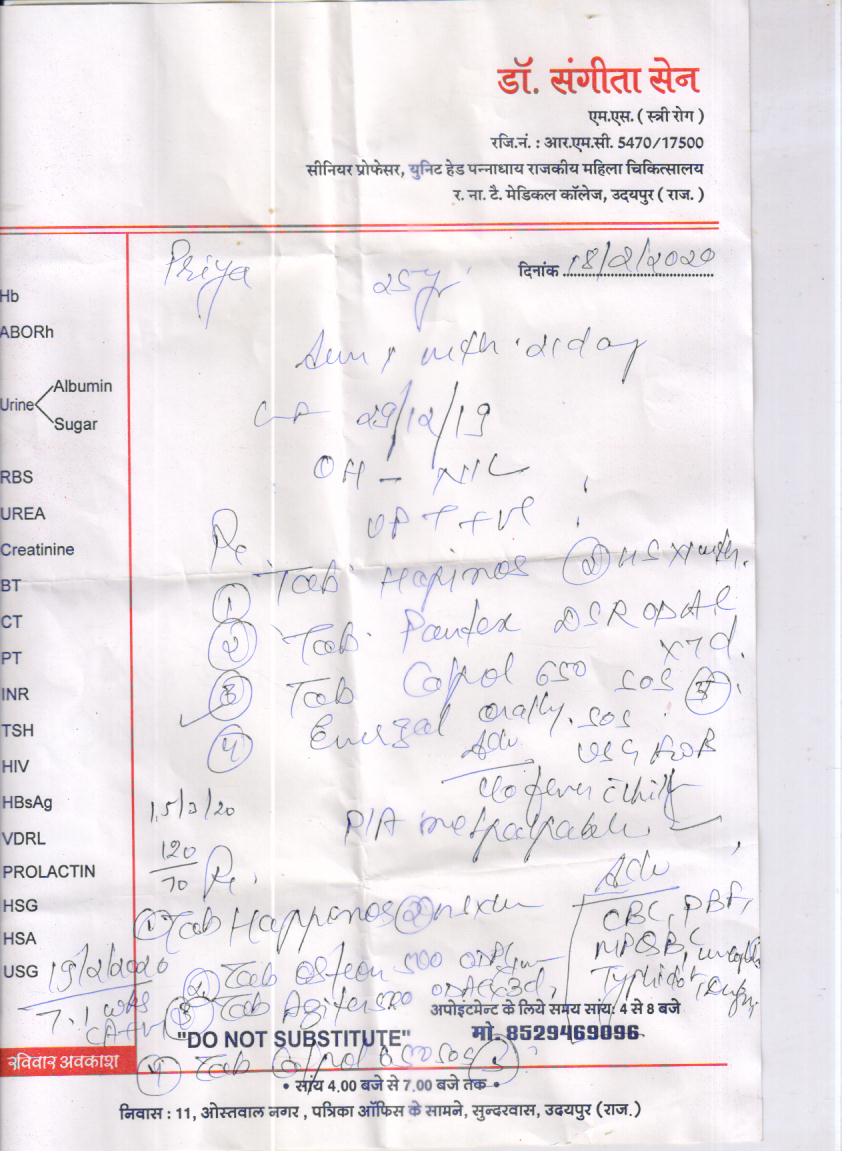 डॉ. संगीता सेन
एम.एस. ( स्त्री रोग )
रजि.नं. : आर.एम.सी. 5470/17500
सीनियर प्रोफेसर, युनिट हेड पन्नाधाय राजकीय महिला चिकित्सालय
र. ना. टै. मेडिकल कॉलेज, उदयपुर ( राज. )
दिनांक 18/2/2020
Priya 25yr
Hb
ABORh
Urine Albumin
Sugar
RBS
UREA
Creatinine
BT
CT
PT
INR
TSH
HIV
HBsAg
VDRL
PROLACTIN
HSG
HSA
USG 19/2/2020
7.1 wks
रविवार अवकाश
29/12/19
OH - NIL
UPT +ve
Rx
① Tab Hapinos ② HS x
② Tab Pantex DSR OD AC x7d.
③ Tab Calpol 650 SOS
④ orally. SOS
Adv USG
c/o fever c chills
P/A not palpable
15/3/20
120/70 Rx
① Tab Happinos ②
② Tab 500
③ Tab 500 OD x3d,
④ Tab Calpol 650 SOS
Adv
CBC, PBF,
MPQBC,
Typhidot
अपोइंटमेन्ट के लिये समय सांय: 4 से 8 बजे
"DO NOT SUBSTITUTE" मो. 8529469096
• सांय 4.00 बजे से 7.00 बजे तक •
निवास : 11, ओस्तवाल नगर , पत्रिका ऑफिस के सामने, सुन्दरवास, उदयपुर (राज.)